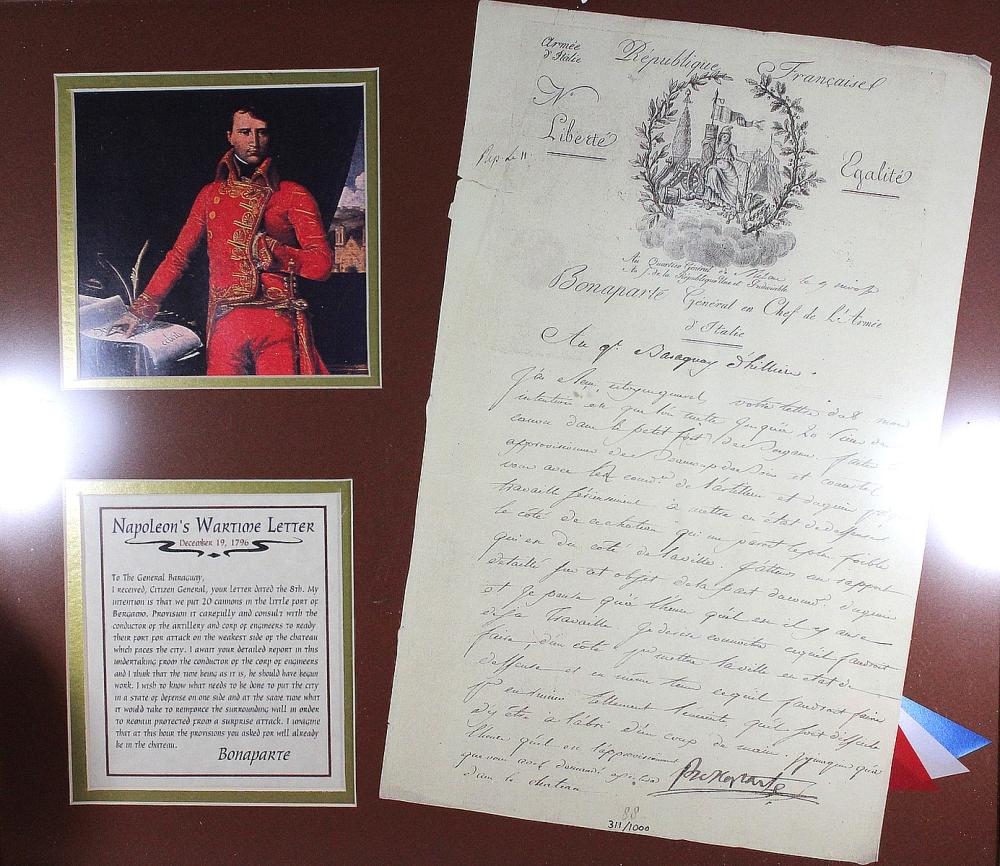 Napoleon's Wartime Letter
December 19, 1796
To The General Baraguay,
I received, Citizen General, your letter dated the 8th. My
intention is that we put 20 cannons in the little fort of
Bergamo. Provision it carefully and consult with the
conductor of the artillery and corp of engineers to ready
their fort for attack on the weakest side of the chateau
which faces the city. I await your detailed report in this
undertaking from the conductor of the corp of engineers
and I think that the time being as it is, he should have begun
work. I wish to know what needs to be done to put the city
in a state of defense on one side and at the same time what
it would take to reinforce the surrounding wall in order
to remain protected from a surprise attack. I imagine
that at this hour the provisions you asked for will already
be in the chateau.
Bonaparte
Armée
d'Italie
République Française
N
Liberté
Egalité
Au Quartier Général à Milan le
An 5 de la République Une et Indivisible
Bonaparte Général en Chef de L'Armée
d'Italie
Au gl Baraguay d'hilliers
votre lettre du 8 mon
intention est que l'on mette jusqu'à 20
canon dans le petit fort de Bergame. faites
approvisionner de beaucoup de soin et
vous avec le de l'artillerie et du
travaille à mettre en état de deffense
le côté qui me paroit le plus foible
qui est du côté de la ville. J'attens un rapport
détaillé sur cet objet de la part du
et je pense qu'à l'heure qu'il est il y aura
déja travaillé Je desire connoitre ce qu'il faudroit
faire, d'un côté pr mettre la ville en état de
deffense et en même tems ce qu'il faudroit faire
pr tellement l'enceinte qu'il soit difficile
d'y être à l'abri d'un coup de main
l'heure qu'il est l'approvisionnement
que vous avez demandé
dans le chateau
Bonaparte
88
311/1000